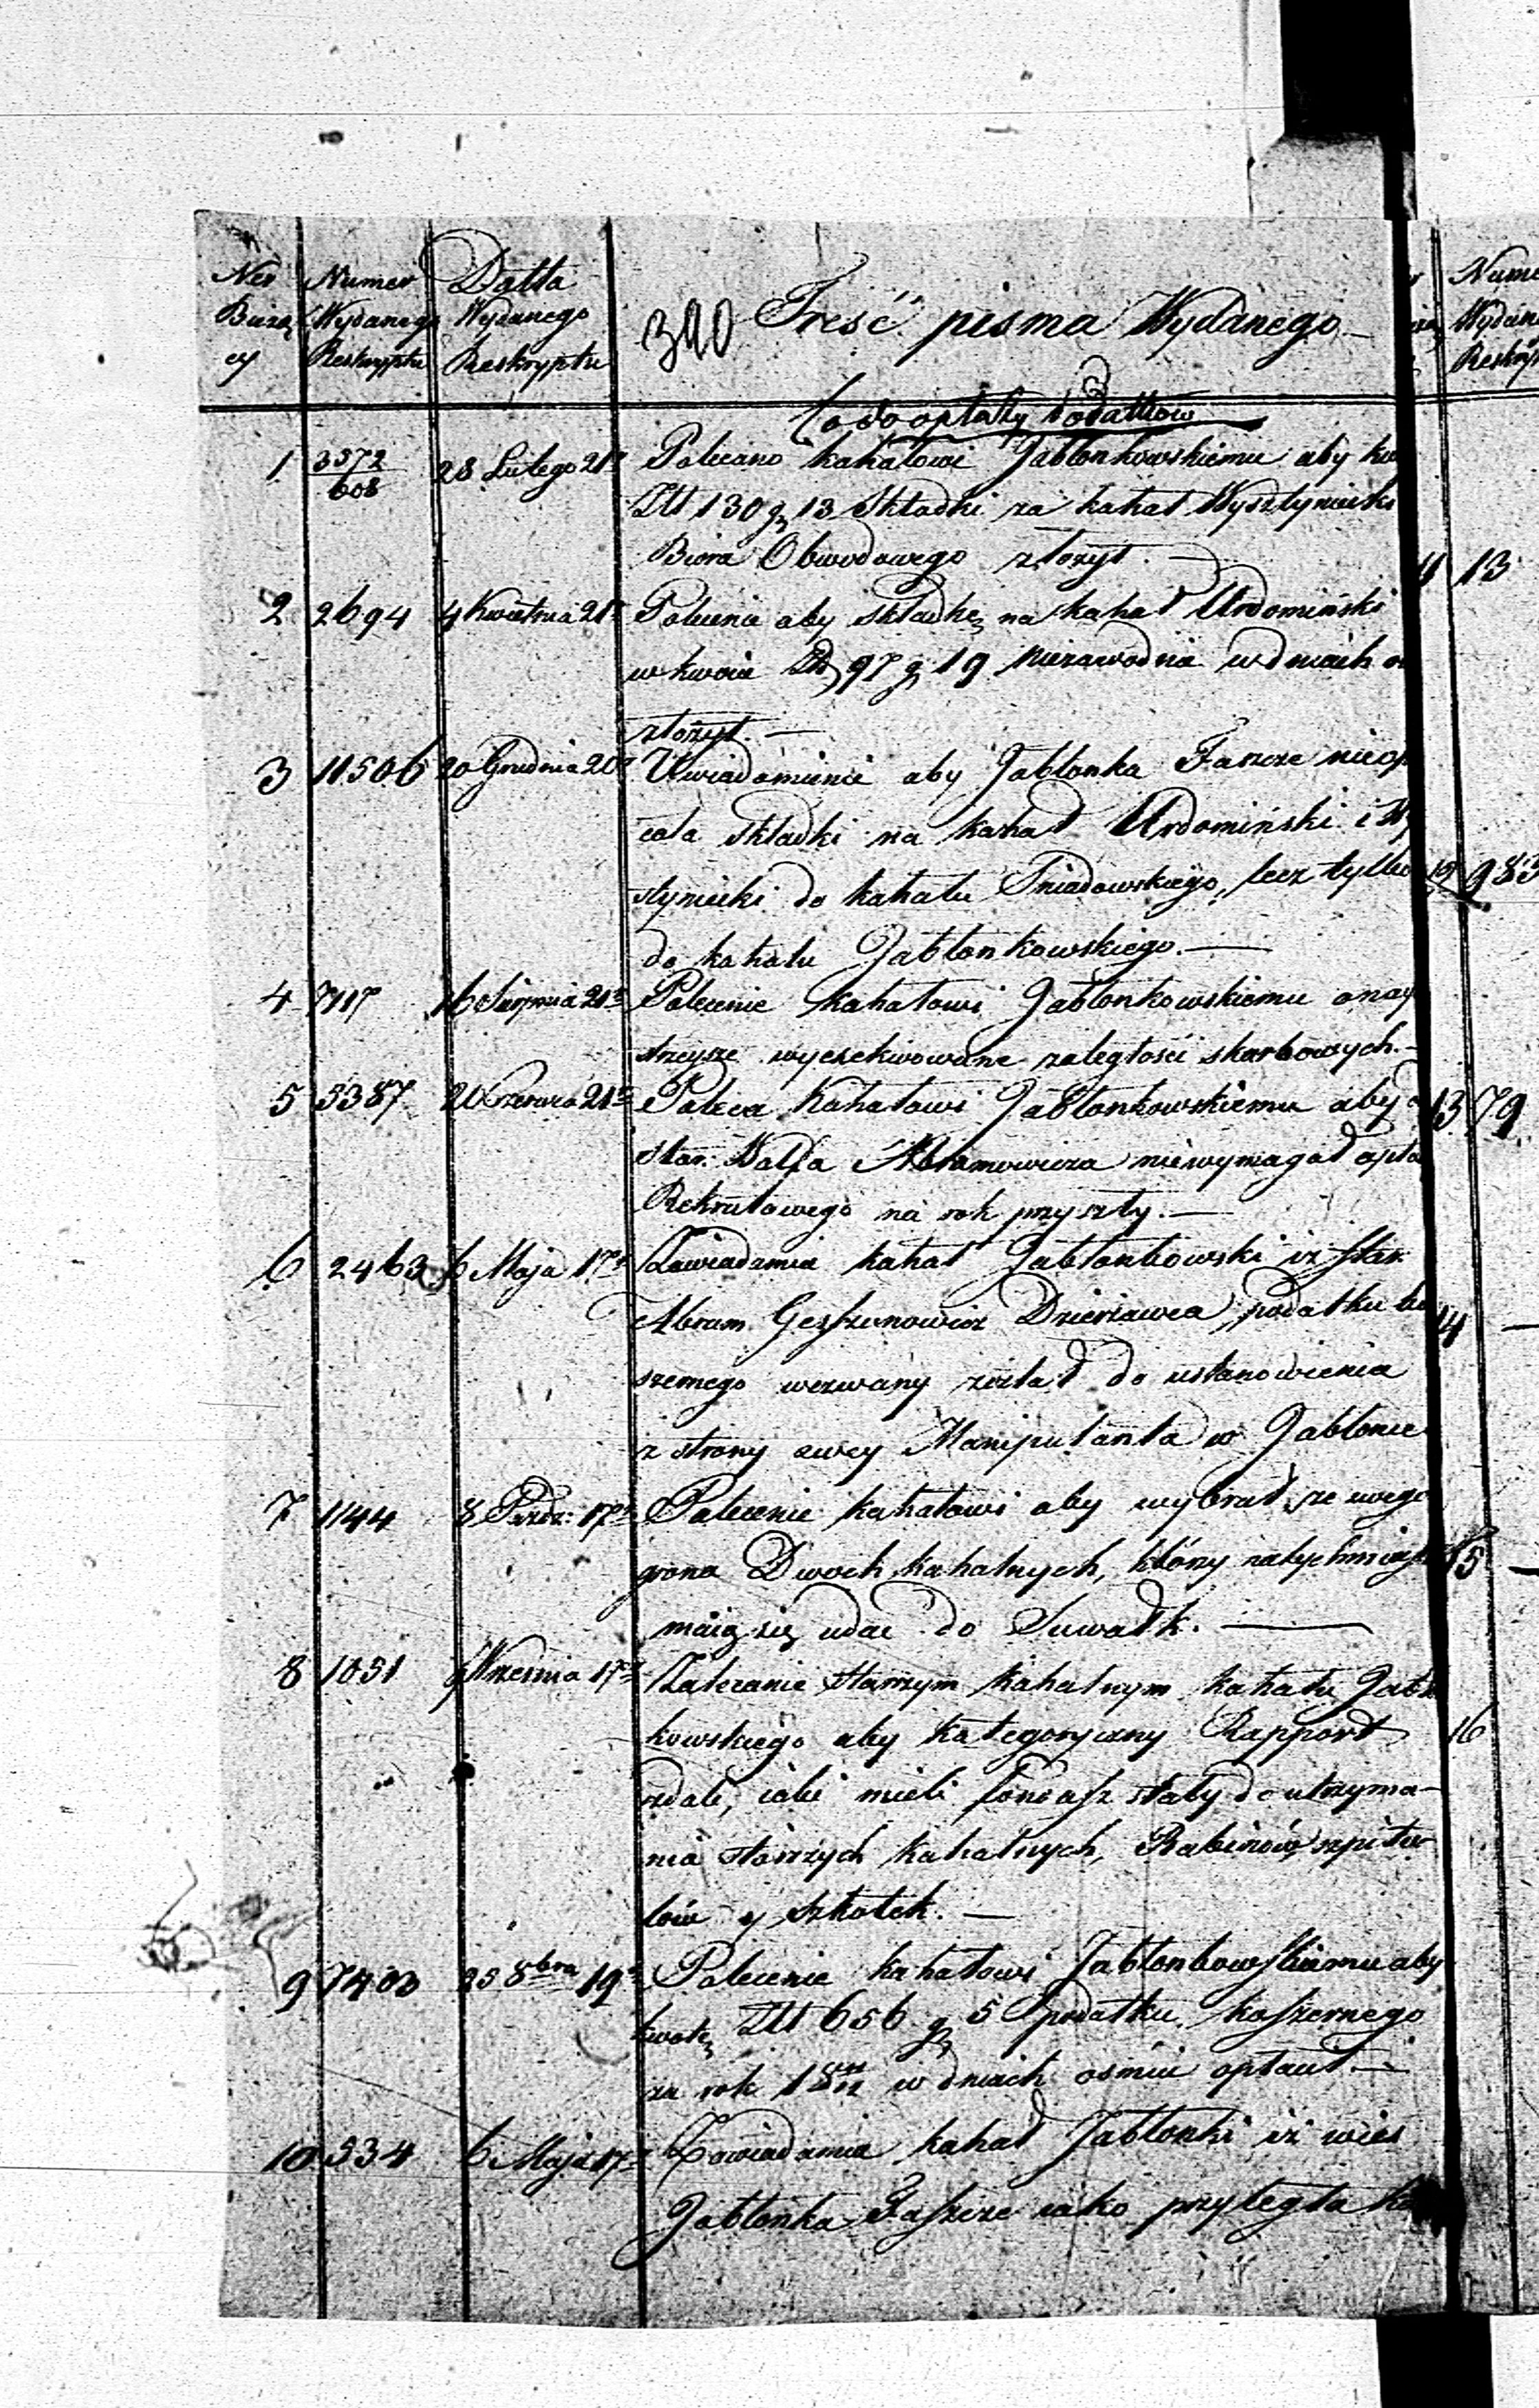 Ner Numer Datta
Bieżą Wydanego Wydanego 390 Treść pisma Wydanego
cy Reskryptu Reskryptu
Co do opłaty Podatków
1 3372/608 28 Lutego 21 Polecono kahałowi Jabłonkowskiemu aby
Złł 130 g 13 Składki za kahał Wysztyniecki
Biora Obwodowego złożył. —
2 2694 4 Kwietnia 21 Polecenie aby składkę na kahał Urdomiński
w kwocie Zł 97 g 19 niezawodnie w dniach
złożył. —
3 11506 20 Grudnia 20 Uwiadomienie aby Jabłonka Faszcze nieop
cała składki na kahał Urdomiński i
styniecki do kahału Sniadowskiego, lecz tylko
do kahału Jabłonkowskiego. —
4 7117 16 Sierpnia 21 Polecenie kahałowi Jabłonkowskiemu o nay
strzysze wyexekwowane zaległości skarbowych. —
5 5387 20 Czerwca 21 Poleca Kahałowi Jabłonkowskiemu aby
star: Wolfa Abramowicza niewymagał opła
Rekrutowego na rok przyszły. —
6 2463 6 Maja 17 Zawiadamia kahał Jabłonkowski iż star
Abram Gerszunowicz Dzierżawca podatku ko
szernego wezwany został do ustanowienia
z strony swey Manipulanta w Jabłonce
7 1144 8 Paźdz: 17 Polecenie kahałowi aby wybrał ze swego
grona Dwoch kahalnych, którzy natychmiast
maią się udać do Suwałk. —
8 1051 9 Września 17 Zalecanie starszym kahalnym kahału Jabłon
kowskiego aby kategoryczny Rapport
zdali, iaki mieli fondusz stały do utrzyma-
nia starszych kahalnych, Rabinów, szpita
lów y szkołek. —
9 7403 25 8bra 19 Polecenie kahałowi Jabłonkowskiemu aby
kwotę Złł 656 g 5 podatku koszernego
za rok 18 11/12 w dniach ośmiu opłacił —
10 534 6 Maja 17 Zawiadamia kahał Jabłonki iż wieś
Jabłonka Faszcze iako przyległa
Nume
Wydan
Reskry
11 13
12 983
13 79
14 —
15 —
16